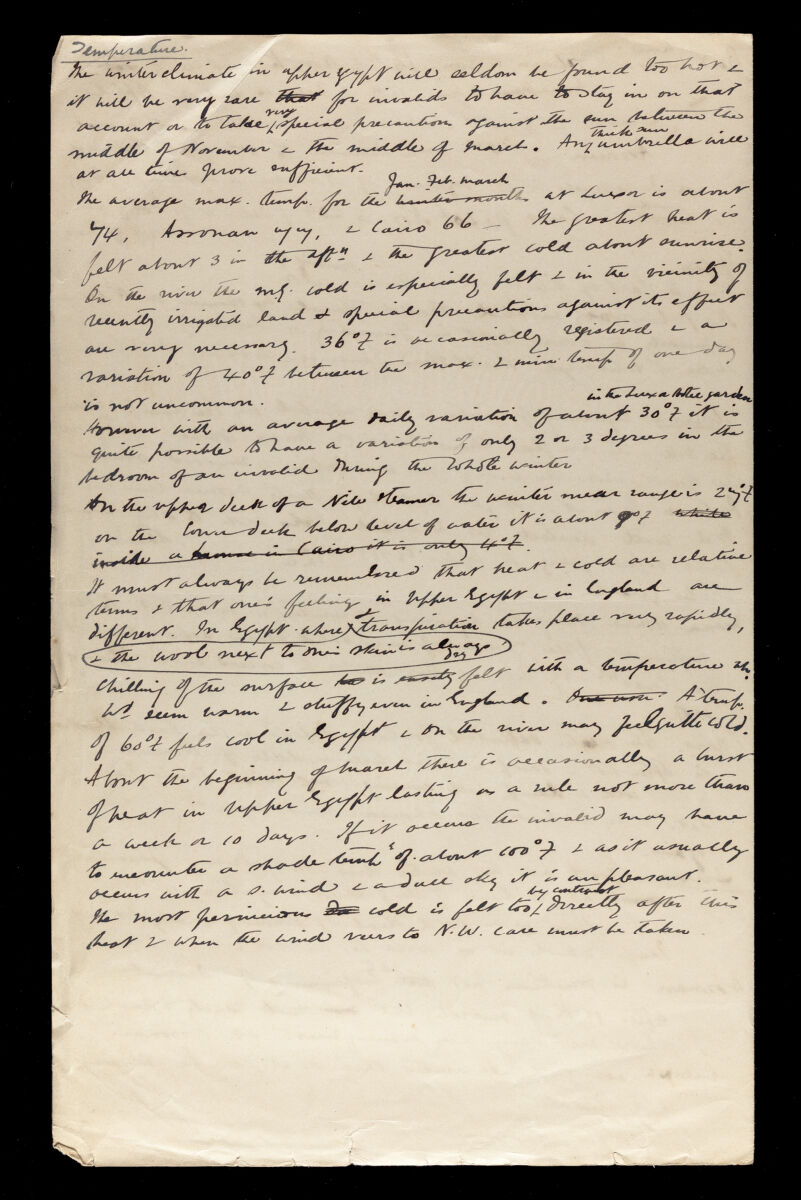 Temperature.
The winter climate in upper Egypt will seldom be found too hot &
it will be very rare that for invalids to have to stay in on that
account or to take very special precautions against the sun between the
middle of November & the middle of March. An thick sun umbrella will
at all times prove sufficient.
Jan. Feb. March
The average max. temp. for the winter months at Luxor is about
74, Assouan & Cairo 66 — The greatest heat is
felt about 3 in the aftn & the greatest cold about sunrise.
On the river the mg. cold is especially felt & in the vicinity of
recently irrigated land & special precautions against its effect
are very necessary. 36°F is occasionally registered & a
variation of 40°F between the max. & min. temp of one day
is not uncommon.
in the Luxor Hotel garden
However with an average daily variation of about 30°F it is
quite possible to have a variation of only 2 or 3 degrees in the
bedroom of an invalid during the whole winter
On the upper deck of a Nile steamer the winter mean range is
on the lower deck below level of water it is about 9°F while
inside a house in Cairo it is only 4°F.
It must always be remembered that heat & cold are relative
terms & that one's feelings in Upper Egypt & in England are
different. In Egypt where transpiration takes place very rapidly,
& the wool next to one's skin is always dry
chilling of the surface is easily felt with a temperature wh.
wd seem warm & stuffy even in England. A temp.
of 60°F feels cool in Egypt & on the river may feel quite cold.
About the beginning of March there is occasionally a burst
of heat in Upper Egypt lasting as a rule not more than
a week or 10 days. If it occurs the invalid may have
to encounter a shade temp of about 100°F & as it usually
occurs with a S. wind & a dull sky it is unpleasant.
The most pernicious cold is felt too, by contrast directly after this
heat & when the wind veers to N.W. care must be taken.